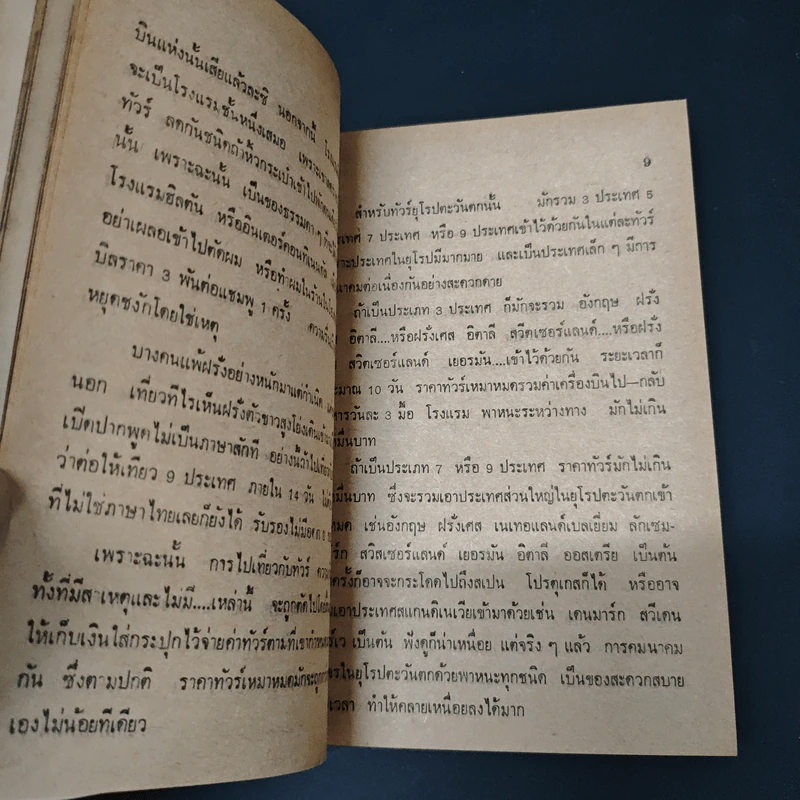 บินแห่งนั้นเสียแล้วละซิ นอกจากนี้
จะเป็นโรงแรมชั้นหนึ่งเสมอ เพราะเรา
ทัวร์ ลดกันชนิดถ้าหิ้วกระเป๋าเข้าไปพัก
นั้น เพราะฉะนั้น เป็นของธรรมดา ๆ
โรงแรมฮิลตัน หรืออินเตอร์คอนทิเนนตัล
อย่าเผลอเข้าไปตัดผม หรือทำผมในร้านใน
บิลราคา 3 พันต่อแชมพู 1 ครั้ง
หยุดชงักโดยใช่เหตุ
บางคนแพ้ฝรั่งอย่างหนักมาแต่กำเนิด
นอก เที่ยวทีไรเห็นฝรั่งตัวขาวสูงโย่งเดินเข้า
เปิดปากพูดไม่เป็นภาษาสักที อย่างนี้ถ้าไปเที่ยว
ว่าต่อให้เที่ยว 9 ประเทศ ภายใน 14 วัน
ที่ไม่ใช่ภาษาไทยเลยก็ยังได้ รับรองไม่มีอด
เพราะฉะนั้น การไปเที่ยวกับทัวร์
ทั้งที่มีสาเหตุและไม่มี....เหล่านี้ จะถูกตัดไปโดย
ให้เก็บเงินใส่กระปุกไว้จ่ายค่าทัวร์ตามที่เขากำหนด
กัน ซึ่งตามปกติ ราคาทัวร์เหมาหมดมักจะถูก
เองไม่น้อยทีเดียว
9
สำหรับทัวร์ยุโรปตะวันตกนั้น มักรวม 3 ประเทศ 5
7 ประเทศ หรือ 9 ประเทศเข้าไว้ด้วยกันในแต่ละทัวร์
ประเทศในยุโรปมีมากมาย และเป็นประเทศเล็ก ๆ มีการ
คมต่อเนื่องกันอย่างสะดวกดาย
ถ้าเป็นประเภท 3 ประเทศ ก็มักจะรวม อังกฤษ ฝรั่ง
อิตาลี....หรือฝรั่งเศส อิตาลี สวีตเซอร์แลนด์....หรือฝรั่ง
สวิตเซอร์แลนด์ เยอรมัน....เข้าไว้ด้วยกัน ระยะเวลาก็
10 วัน ราคาทัวร์เหมาหมดรวมค่าเครื่องบินไป—กลับ
วันละ 3 มื้อ โรงแรม พาหนะระหว่างทาง มักไม่เกิน
หมื่นบาท
ถ้าเป็นประเภท 7 หรือ 9 ประเทศ ราคาทัวร์มักไม่เกิน
หมื่นบาท ซึ่งจะรวมเอาประเทศส่วนใหญ่ในยุโรปตะวันตกเข้า
เช่นอังกฤษ ฝรั่งเศส เนเทอแลนด์เบลเยี่ยม ลักเซม-
สวิสเซอร์แลนด์ เยอรมัน อิตาลี ออสเตรีย เป็นต้น
ก็อาจจะกระโดดไปถึงสเปน โปรตุเกสก็ได้ หรืออาจ
เอาประเทศสแกนดิเนเวียเข้ามาด้วยเช่น เดนมาร์ก สวีเดน
เป็นต้น ฟังดูก็น่าเหนื่อย แต่จริง ๆ แล้ว การคมนาคม
ในยุโรปตะวันตกด้วยพาหนะทุกชนิด เป็นของสะดวกสบาย
เวลา ทำให้คลายเหนื่อยลงได้มาก